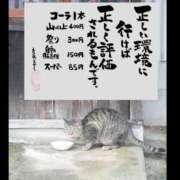 正しい環境に
行けば
正しく評価
されるもんです。
コーラ1本
山の上 400円
祭り 300円
自販機 150円
スーパー 85円